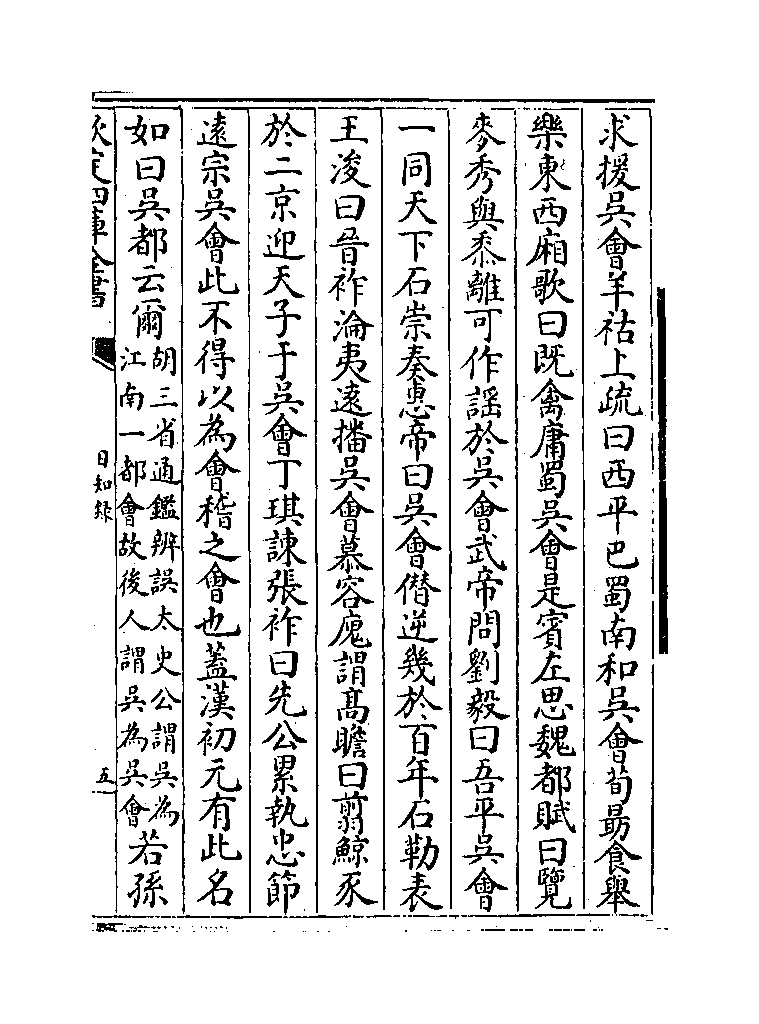 求援吳會羊祜上疏曰西平巴蜀南和吳會荀勗食舉
樂東西廂歌曰既禽庸蜀吳會是賓左思魏都賦曰覽
麥秀與黍離可作謡於吳會武帝問劉毅曰吾平吳會
一同天下石崇奏惠帝曰吳會僣逆幾於百年石勒表
王浚曰晉祚淪夷逺播吳會慕容廆謂髙瞻曰翦鯨豕
於二京迎天子于吳會丁琪諌張祚曰先公累執忠節
逺宗吳會此不得以為會稽之會也蓋漢初元有此名
如曰吳都云爾胡三省通鑑辨誤太史公謂吳為
江南一都會故後人謂吳為吳會若孫
欽定四庫全書
日知録
五